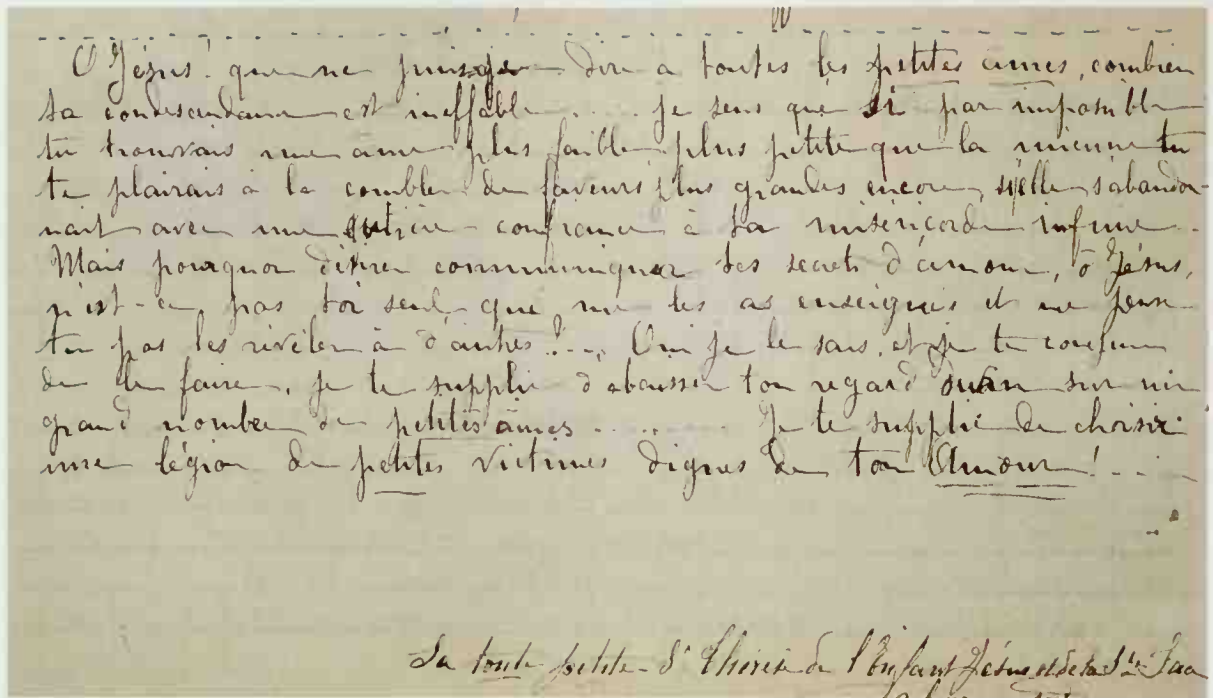 O Jésus! que ne puis-je dire à toutes les petites âmes, combien
ta condescendance est ineffable..... je sens que si par impossible
tu trouvais une âme plus faible, plus petite que la mienne tu
te plairais à la combler de faveurs plus grandes encore, si elle s'abandon-
nait avec une entière confiance à ta miséricorde infinie.
Mais pourquoi désirer communiquer tes secrets d'amour, ô Jésus,
n'est-ce pas toi seul qui me les as enseignés et ne peux-
tu pas les révéler à d'autres?... Oui je le sais, et je te conjure
de le faire, je te supplie d'abaisser ton regard divin sur un
grand nombre de petites âmes........ Je te supplie de choisir
une légion de petites victimes dignes de ton Amour!....
La toute petite Sr Thérèse de l'Enfant Jésus et de la Ste Face